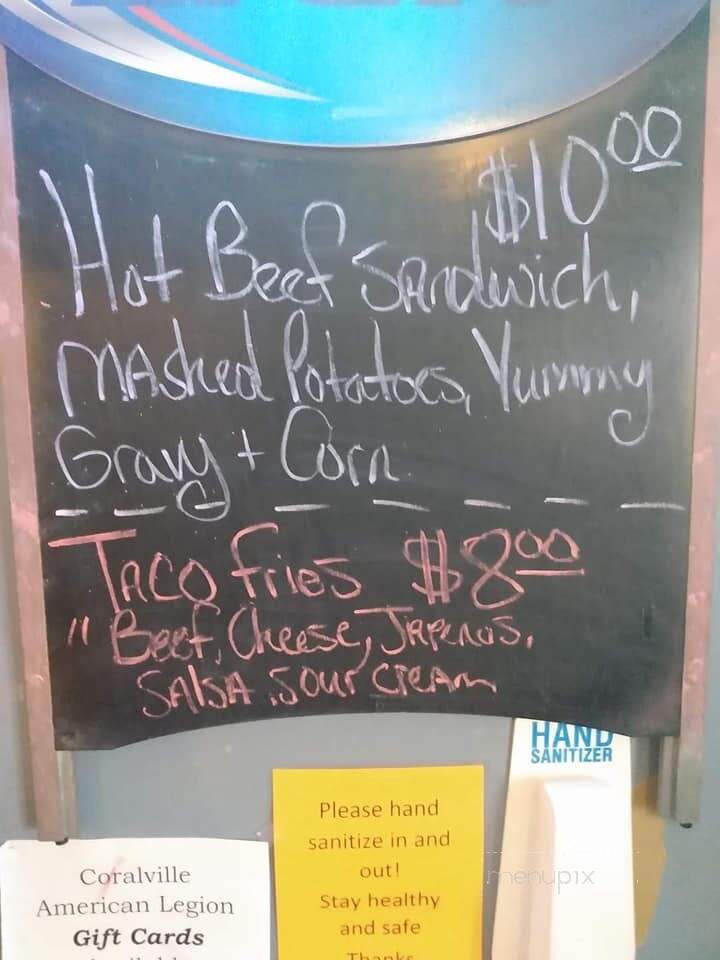 $10.00
Hot Beef Sandwich,
Mashed Potatoes, Yummy
Gravy + Corn
Taco fries $8.00
" Beef, Cheese, Japenos,
Salsa, Sour Cream
HAND
SANITIZER
Please hand
sanitize in and
out!
Stay healthy
and safe
Thanks
Coralville
American Legion
Gift Cards
menupix